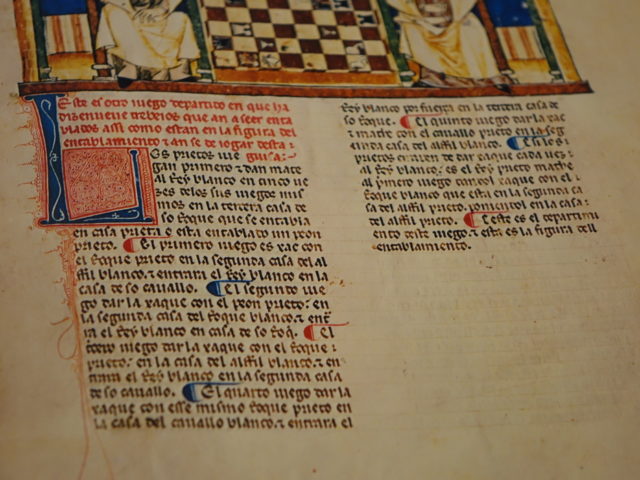 Este es otro iuego departido en que ha
dizenueue trebeios que an a seer enta
blados assi como estan en la figura del
entablamiento ⁊ an se de iogar desta
guisa:
Los prietos iue
gan primero ⁊ dan mate
al Rey blanco en cinco ue
zes delos sus iuegos mis
mos en la tercera casa de
so Roque que se entabla
en casa prieta ⁊ esta entablado un peon
prieto. El primero iuego es xac con
el Roque prieto en la segunda casa del al
ffil blanco. ⁊ entrara el Rey blanco en la
casa de so cauallo. El segundo iue
go dar la xaque con el peon prieto: en
la segunda casa del Roque blanco. ⁊ ent
ra el Rey blanco en casa de so Roq. El
tercero iuego dar la xaque con el Roque
prieto. en la casa del alffil blanco. ⁊ en
trara el Rey blanco en la segunda casa
de so cauallo. El quarto iuego dar la
xaque con esse mismo Roque prieto en
la casa del cauallo blanco. ⁊ entrara el
Rey blanco por fuerça en la tercera casa de
so Roque. El quinto iuego dar la xac
⁊ mate con el cauallo prieto en la seg
unda casa del alffil blanco. E si los
prietos erraren de dar xaque cada uez
al Rey blanco. es el Rey prieto mathe
al primero iuego con el xaque con el
Roque blanco que esta en la segunda ca
sa del alffil prieto. poniendol en la casa
del alffil prieto. E este es el departimi
ento deste iuego. ⁊ esta es la figura dell
entablamiento.